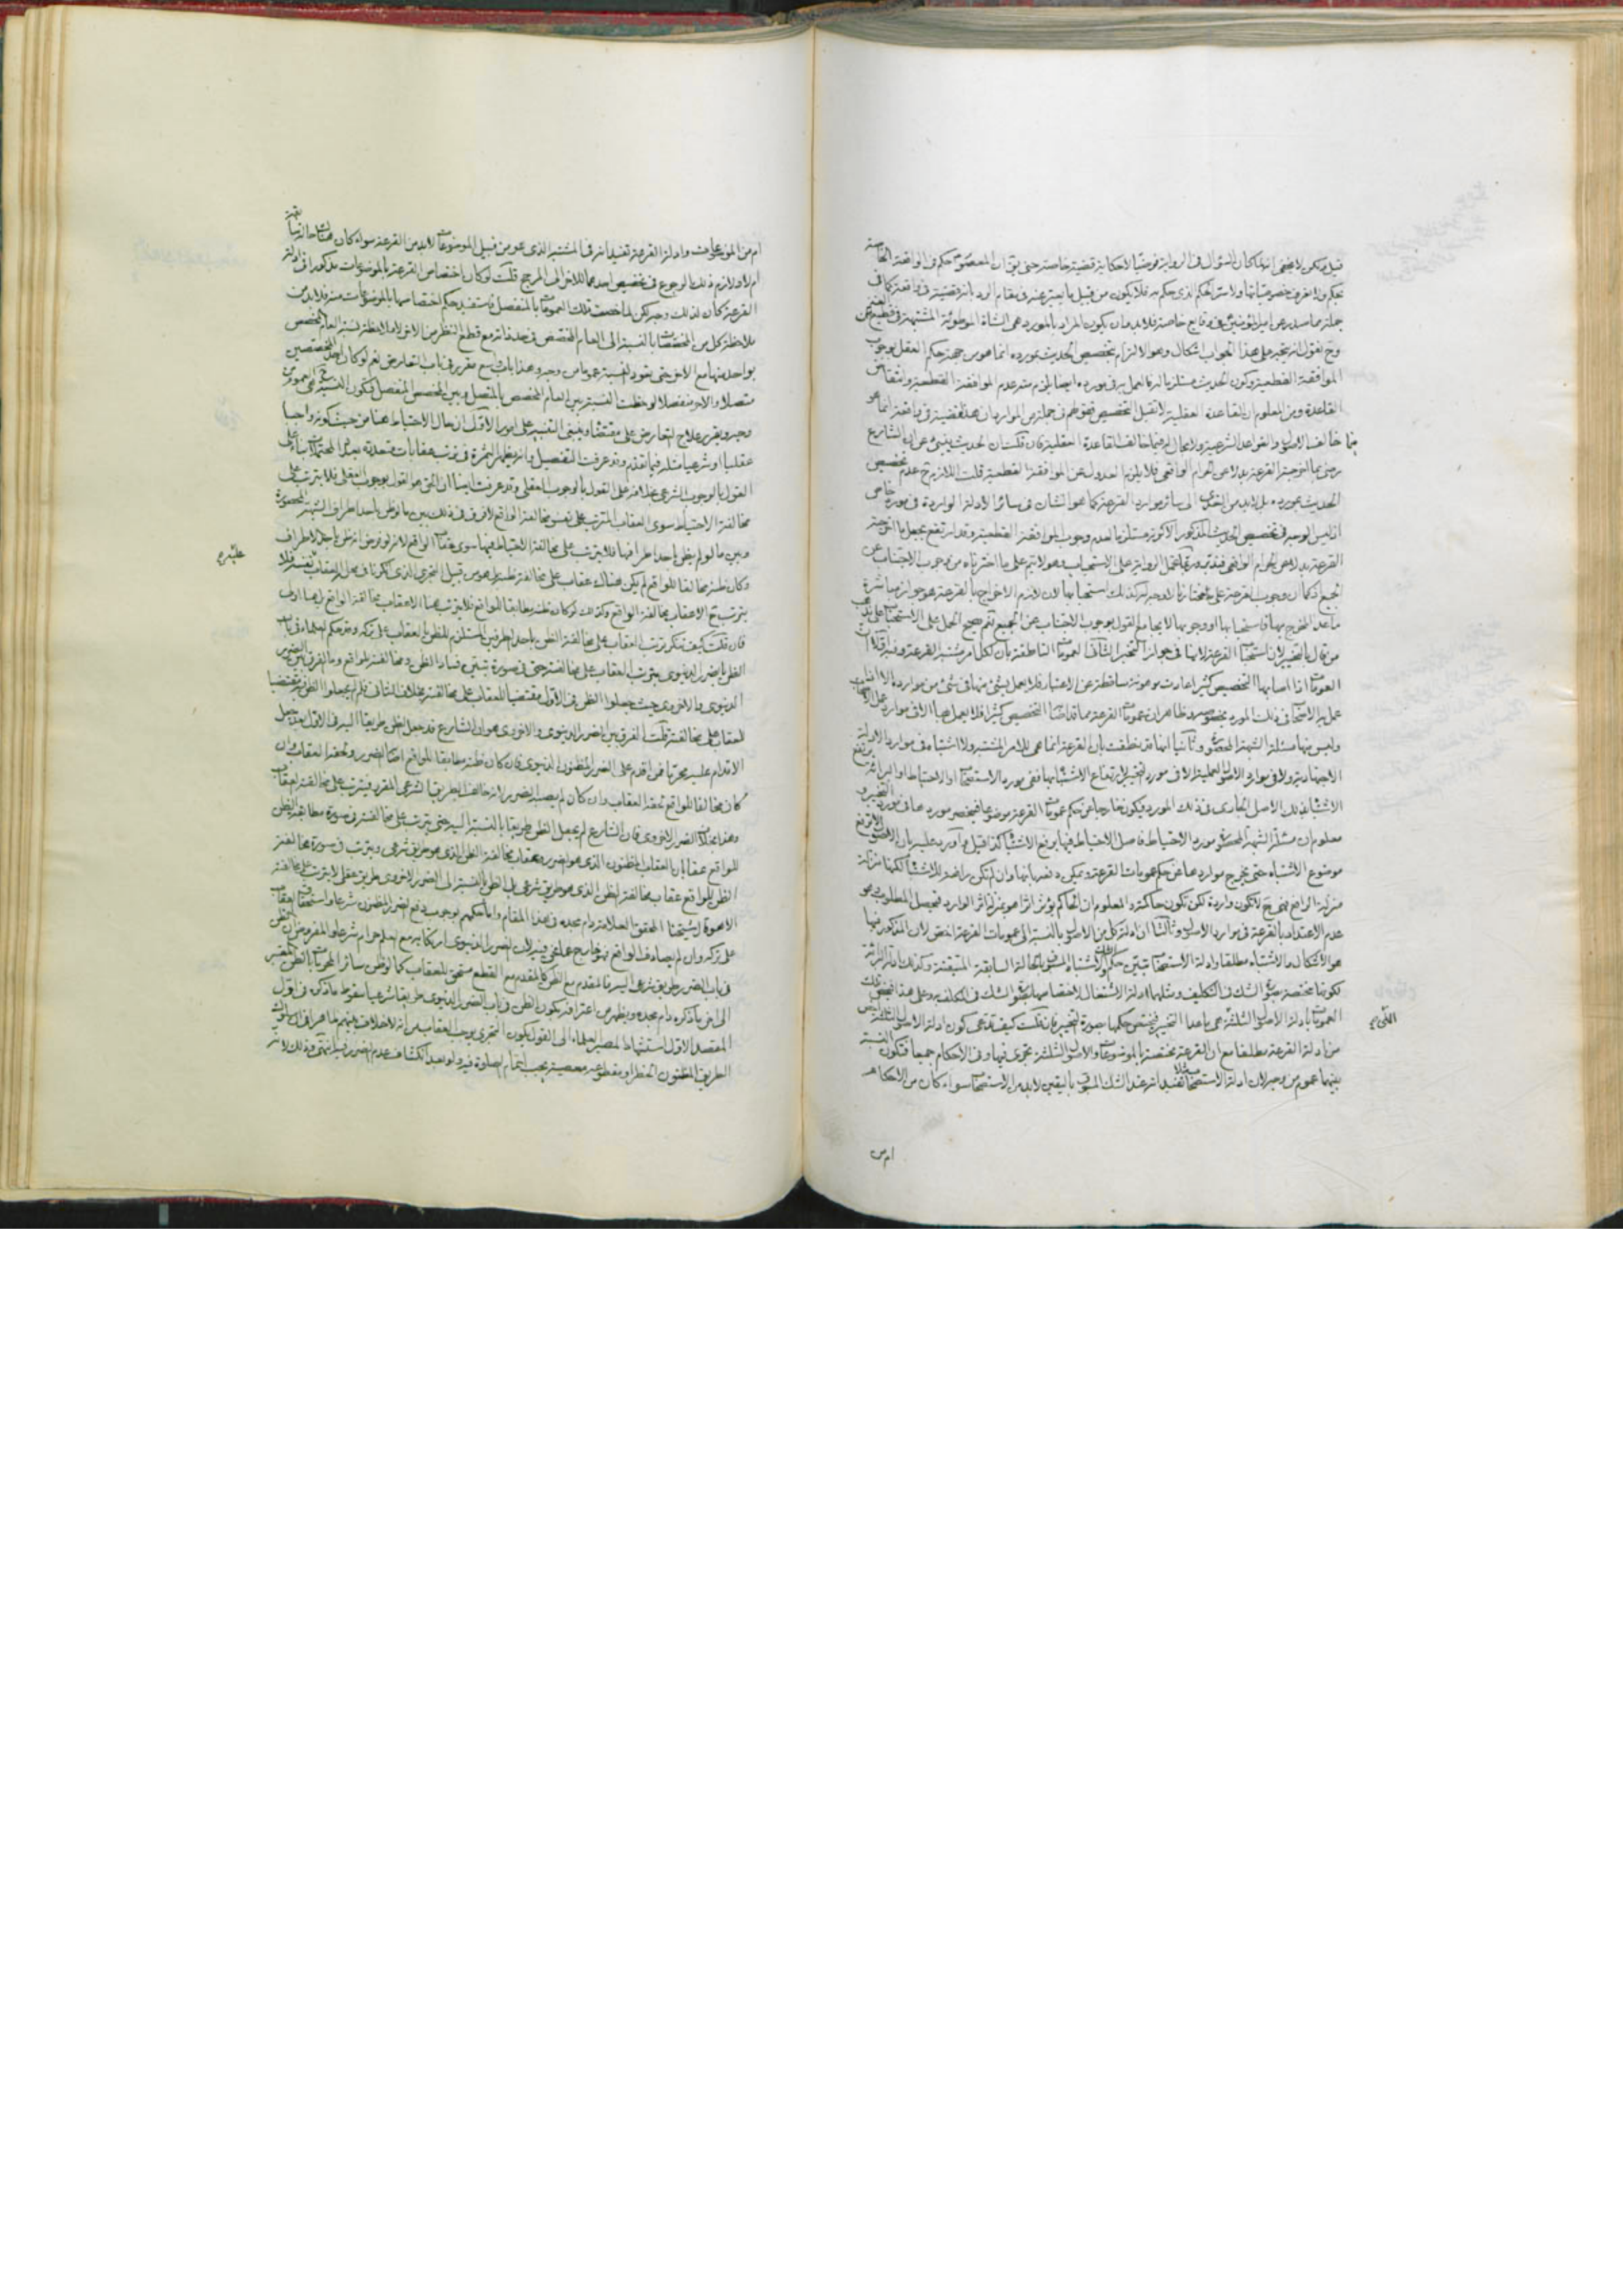 قيل ويكون لا يخفى انه لما كان السؤال فى الرواية فرضيا لا حكاية قضية خاصة حتى يقال ان المعصوم حكم فى الواقعة الخاصة
بحكم ولا نعرف خصوصياتها ولا سر الحكم الذى حكم به فلا يكون من قبيل ما يعبر عنه فى مقام الرد بانه قضية فى واقعة كما فى
جملة مما صدر عن امير المؤمنين فى وقايع خاصة فلا بد من ان يكون المراد بالمورد هى الشاة الموطوئة المشتبهة فى قطيع من الغنم
وح نقول انه يتجه على هذا الجواب اشكال وهو ان الالتزام بتخصيص الحديث بمورده انما هو من جهة حكم العقل بوجوب
الموافقة القطعية وكون الحديث مستلزما لترك العمل به فى مورده ايضا يلزم منه عدم الموافقة القطعية وانتقاض
القاعدة ومن المعلوم ان القاعدة العقلية لا تقبل التخصيص فقولهم فى جملة من الموارد ان هذا قضية فى واقعة انما هو
فيما خالف الاصول والقواعد الشرعية ولا مجال له فيما خالف القاعدة العقلية فان قلت ان الحديث ينبئ عن ان الشارع
رضى بما اخرجته القرعة بدلا عن الحرام الواقعى فلا يلزم العدول عن الموافقة القطعية قلت اللازم ح عدم تخصيص
الحديث بمورده بل لا بد من التعدى الى سائر موارد القرعة كما هو الشان فى سائر الادلة الواردة فى مورد خاص
اذ ليس الوجه فى تخصيص الحديث المذكور الا كونه مستلزما لعدم وجوب الموافقة القطعية وقد ارتفع بجعل ما اخرجته
القرعة بدلا عن الحرام الواقعى
الجميع كما ان وجوب القرعة على المختار لا وجه له كذلك استحبابها لان لازم الاخراج بالقرعة هو جواز مباشرة
ما عدا المخرج بها فاستحبابها او وجوبها لا يجامع القول بوجوب الاجتناب عن الجميع نعم يصح الحمل على الاستحباب على مذهب
من قال بالتخيير لان استحباب القرعة لا ينافى جواز التخيير الثانى العمومات الناطقة بان لكل امر مشتبه القرعة وفيه اولا ان
العمومات اذا اصابها التخصيص كثيرا عادت موهونة ساقطة عن الاعتبار فلا يعمل بشئ منها فى شئ من موارده الا اذا
عمل به الاصحاب فى ذلك المورد بخصوصه وظاهر ان عمومات القرعة مما قد اصابها التخصيص كثيرا فلا يعمل بها الا فى موارد عمل الاصحاب
وليس منها مسئلة الشبهة المحصورة وثانيا انها قد نطقت بان القرعة انما هى للامر المشتبه ولا اشتباه فى موارد الادلة
الاجتهادية ولا فى موارد الاصول العملية الا فى مورد التخيير لارتفاع الاشتباه بها ففى مورد الاستصحاب او الاحتياط او البرائة يرتفع
الاشتباه بذلك الاصل الجارى فى ذلك المورد فيكون خارجا عن حكم عمومات القرعة موضوعا فينحصر موردها فى مورد التخيير و
معلوم ان مسئلة الشبهة المحصورة مورد الاحتياط فاصل الاحتياط فيها يرفع الاشتباه كذا قيل واورد عليه بان الاصول لا ترفع
موضوع الاشتباه حتى يخرج مواردها عن حكم عمومات القرعة ويمكن دفعه بانها وان لم تكن رافعة للاشتباه لكنها نازلة
منزلة الرافع فهى ح لا تكون واردة لكن تكون حاكمة والمعلوم ان الحاكم يؤثر اثرا هو بمنزلة اثر الوارد فيحصل المطلوب وهو
عدم الاعتداد بالقرعة فى موارد الاصول وثالثا ان ادلة كل من الاصول بالنسبة الى عمومات القرعة اخص لان المذكور فيها
هو الاشكال والاشتباه مطلقا وادلة الاستصحاب تبين حكم الاشتباه المسبوق بالحالة السابقة المتيقنة وكذلك ادلة البرائة
لكونها مختصة بصورة الشك فى التكليف ومثلها ادلة الاشتغال لاختصاصها بصورة الشك فى المكلف به وعلى هذا فيخصص تلك
العمومات بادلة الاصول الثلثة هى ما عدا التخيير فيختص حكمها بصورة التخيير فان قلت كيف تدعى كون ادلة الاصول الثلثة اخص
من ادلة القرعة مطلقا مع ان القرعة مختصة بالموضوعات والاصول الثلثة تجرى فيها وفى الاحكام جميعا فتكون النسبة
بينهما عموم من وجه لان ادلة الاستصحاب مثلا تفيد انه عند الشك المسبوق باليقين لا بد من الاستصحاب سواء كان من الاحكام
ام من
ام من الموضوعات وادلة القرعة تفيد انه فى المشتبه الذى هو من قبيل الموضوعات لا بد من القرعة سواء كان هناك حالة سابقة
ام لا ولازم ذلك الرجوع فى تخصيص احدهما للاخر الى المرجح قلت لو كان اختصاص القرعة بالموضوعات مذكورا فى ادلة
القرعة كان لذلك وجه لكن لما خصصت تلك العمومات بالمنفصل فاستفيد حكم اختصاصها بالموضوعات منه فلا بد من
ملاحظة كل من المخصصات بالنسبة الى العام المخصص فى حد ذاته مع قطع النظر عن الاخر لا ملاحظة نسبة العام المخصص
بواحد منها مع الاخر حتى يعود النسبة عموما من وجه وهذا باب واسع مقرر فى باب التعارض نعم لو كان احد المخصصين
متصلا والاخر منفصلا لوحظت النسبة بين العام المخصص بالمتصل وبين المخصص المنفصل فتكون النسبة ح هى العموم من
وجه ويقرر علاج التعارض على مقتضاها وينبغى التنبيه على امور الاول ان حال الاحتياط هنا من حيث كونه واجبا
عقليا او شرعيا مثله فيما تقدم وقد عرفت التفصيل وانه يظهر الثمرة فى ترتب عقابات متعددة بعدد المحتملات بناء على
القول بالوجوب الشرعى بخلافه على القول بالوجوب العقلى وقد عرفت ايضا ان الحق هو القول بوجوب العقلى فلا يترتب على
مخالفة الاحتياط سوى العقاب المترتب على نفس مخالفة الواقع لا فرق فى ذلك بين ما لو ظن باحد اطراف الشبهة المحصورة
وبين ما لو لم يظن باحد اطرافها فلا يترتب على مخالفة الاحتياط فيها سوى عقاب الواقع لانه لو فرض انه ظن باحد الاطراف
وكان ظنه مخالفا للواقع لم يكن هناك عقاب على مخالفة ظنه بل هو من قبيل التجرى الذى انكرنا فى محله العقاب عليه بنفسه فلا
يترتب ح الا عقاب مخالفة الواقع وكذلك لو كان ظنه مطابقا للواقع فلا يترتب هنا الا عقاب مخالفة الواقع
فان قلت كيف تنكر ترتب العقاب على مخالفة الظن باحد الطرفين المستلزم للظن بالعقاب على تركه وقد حكم العلماء فى باب
الظن بالضرر الدنيوى بترتب العقاب على مخالفته حتى فى صورة تبين فساد الظن ومخالفته للواقع وما الفرق بين الضرر
الدنيوى والاخروى حيث جعلوا الظن فى الاول مقتضيا للعقاب على مخالفته بخلاف الثانى فلم يجعلوا الظن فيه مقتضيا
للعقاب على مخالفته قلت الفرق بين الضرر الدنيوى والاخروى هو ان الشارع قد جعل الظن طريقا اليه فى الاول بعد جعل
الاقدام عليه محرما فمن اقدم على الضرر المظنون الدنيوى فان كان ظنه مطابقا للواقع اصابه الضرر ولحقه العقاب وان
كان مخالفا للواقع لحقه العقاب وان كان لم يصبه الضرر لانه خالف الطريق الشرعى المقرر فيترتب على مخالفته العقاب
وهذا بخلاف الضرر الاخروى فان الشارع لم يجعل الظن طريقا بالنسبة اليه حتى يترتب على مخالفته فى صورة مطابقة الظن
للواقع عقابان العقاب المظنون الذى هو الضرر وعقاب مخالفة الظن الذى هو طريق شرعى ويترتب فى صورة مخالفة
الظن للواقع عقاب مخالفة الظن الذى هو طريق شرعى بل الظن بالنسبة الى الضرر الاخروى طريق عقلى لا يترتب على مخالفته
على تركه وان لم يصادف الواقع فهو خارج عما نحن فيه لان الضرر الدنيوى ارتكابه مع العلم حرام شرعا والمفروض ان الظن
فى باب الضرر طريق شرعى اليه فالمقدم مع الظن كالمقدم مع القطع مستحق للعقاب كما لو ظن سائر المحرمات بالظن المعتبر
الى اخر ما ذكره دام مجده ويظهر من اعترافه بكون الظن فى باب الضرر الدنيوى طريقا شرعيا سقوط ما ذكره فى اول
المقصد الاول استشهادا لمصير العلماء الى القول بكون التجرى يوجب العقاب من انه لا خلاف بينهم ظاهرا فى ان سلوك
الطريق المظنون الخطر او مقطوعه معصية يجب اتمام الصلوة فيه ولو بعد انكشاف عدم الضرر فيه انتهى وذلك لانه